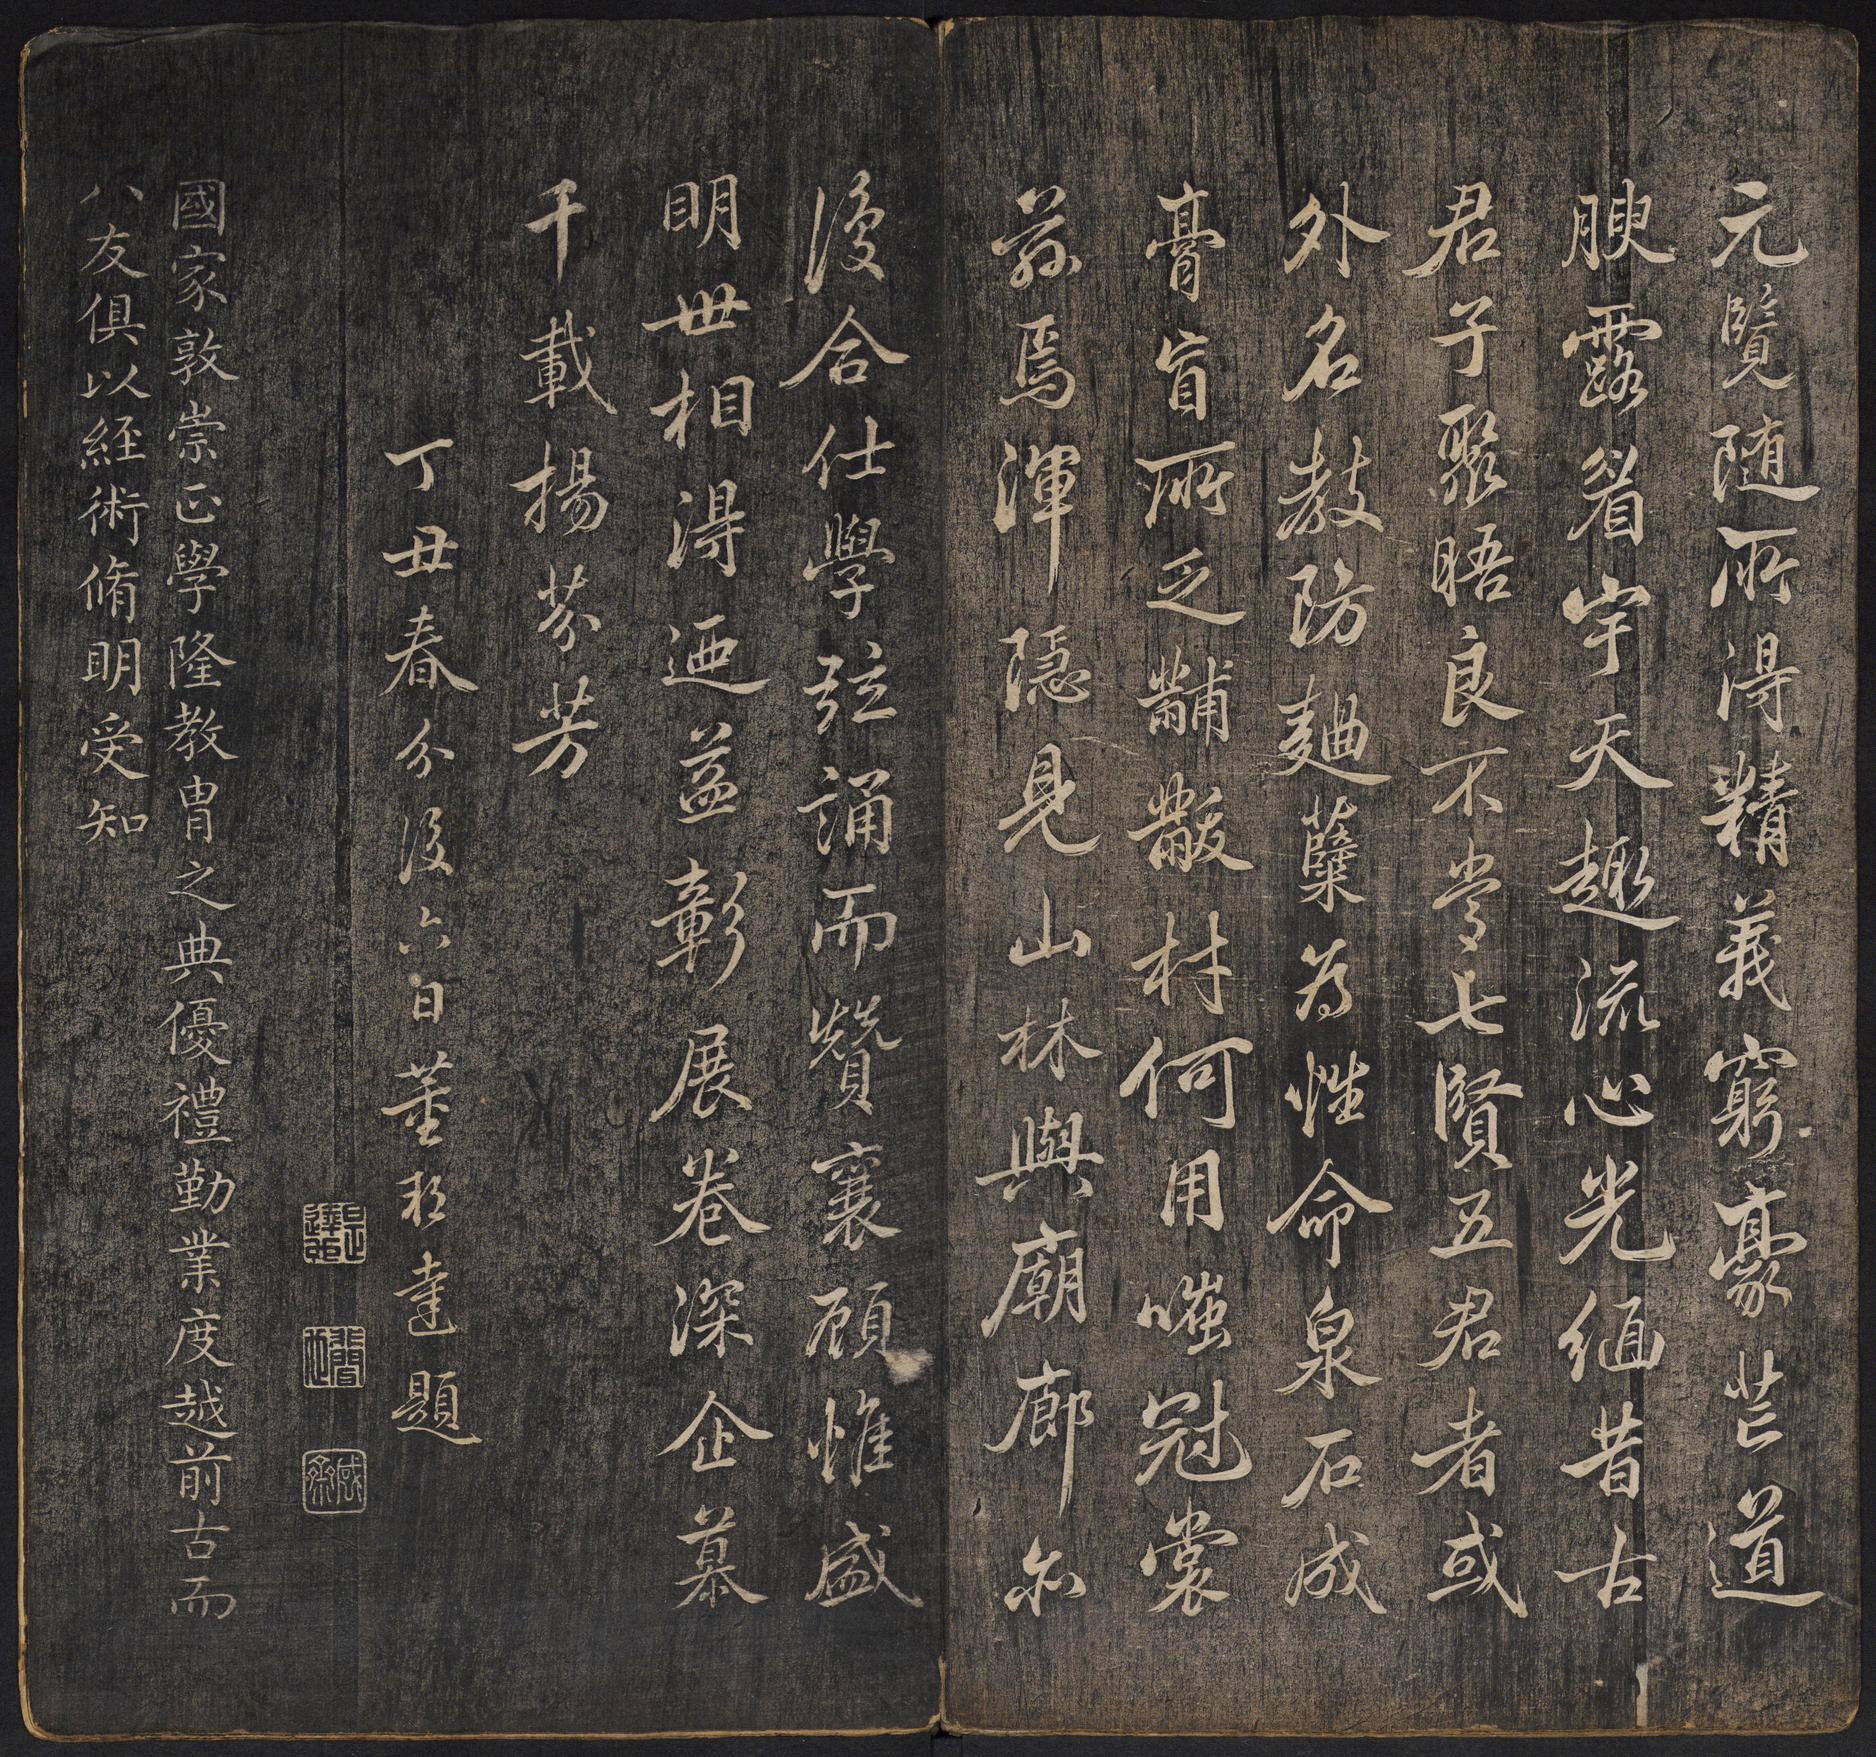 元覽随所得精義窮豪芒道
腴露眉宇天趣流心光緬昔古
君子聚晤良不常七賢五君者或
外名教防麯蘖為性命泉石成
膏肓所乏黼黻材何用嗤冠裳
茲焉渾隱見山林與廟廊尔
後合仕學弦誦而贊襄顧惟盛
明世相得迺益彰展卷深企慕
千載揚芬芳
丁丑春分後六日董邦達題
國家敦崇正學隆教胄之典優禮勤業度越前古而
八友俱以經術脩明受知